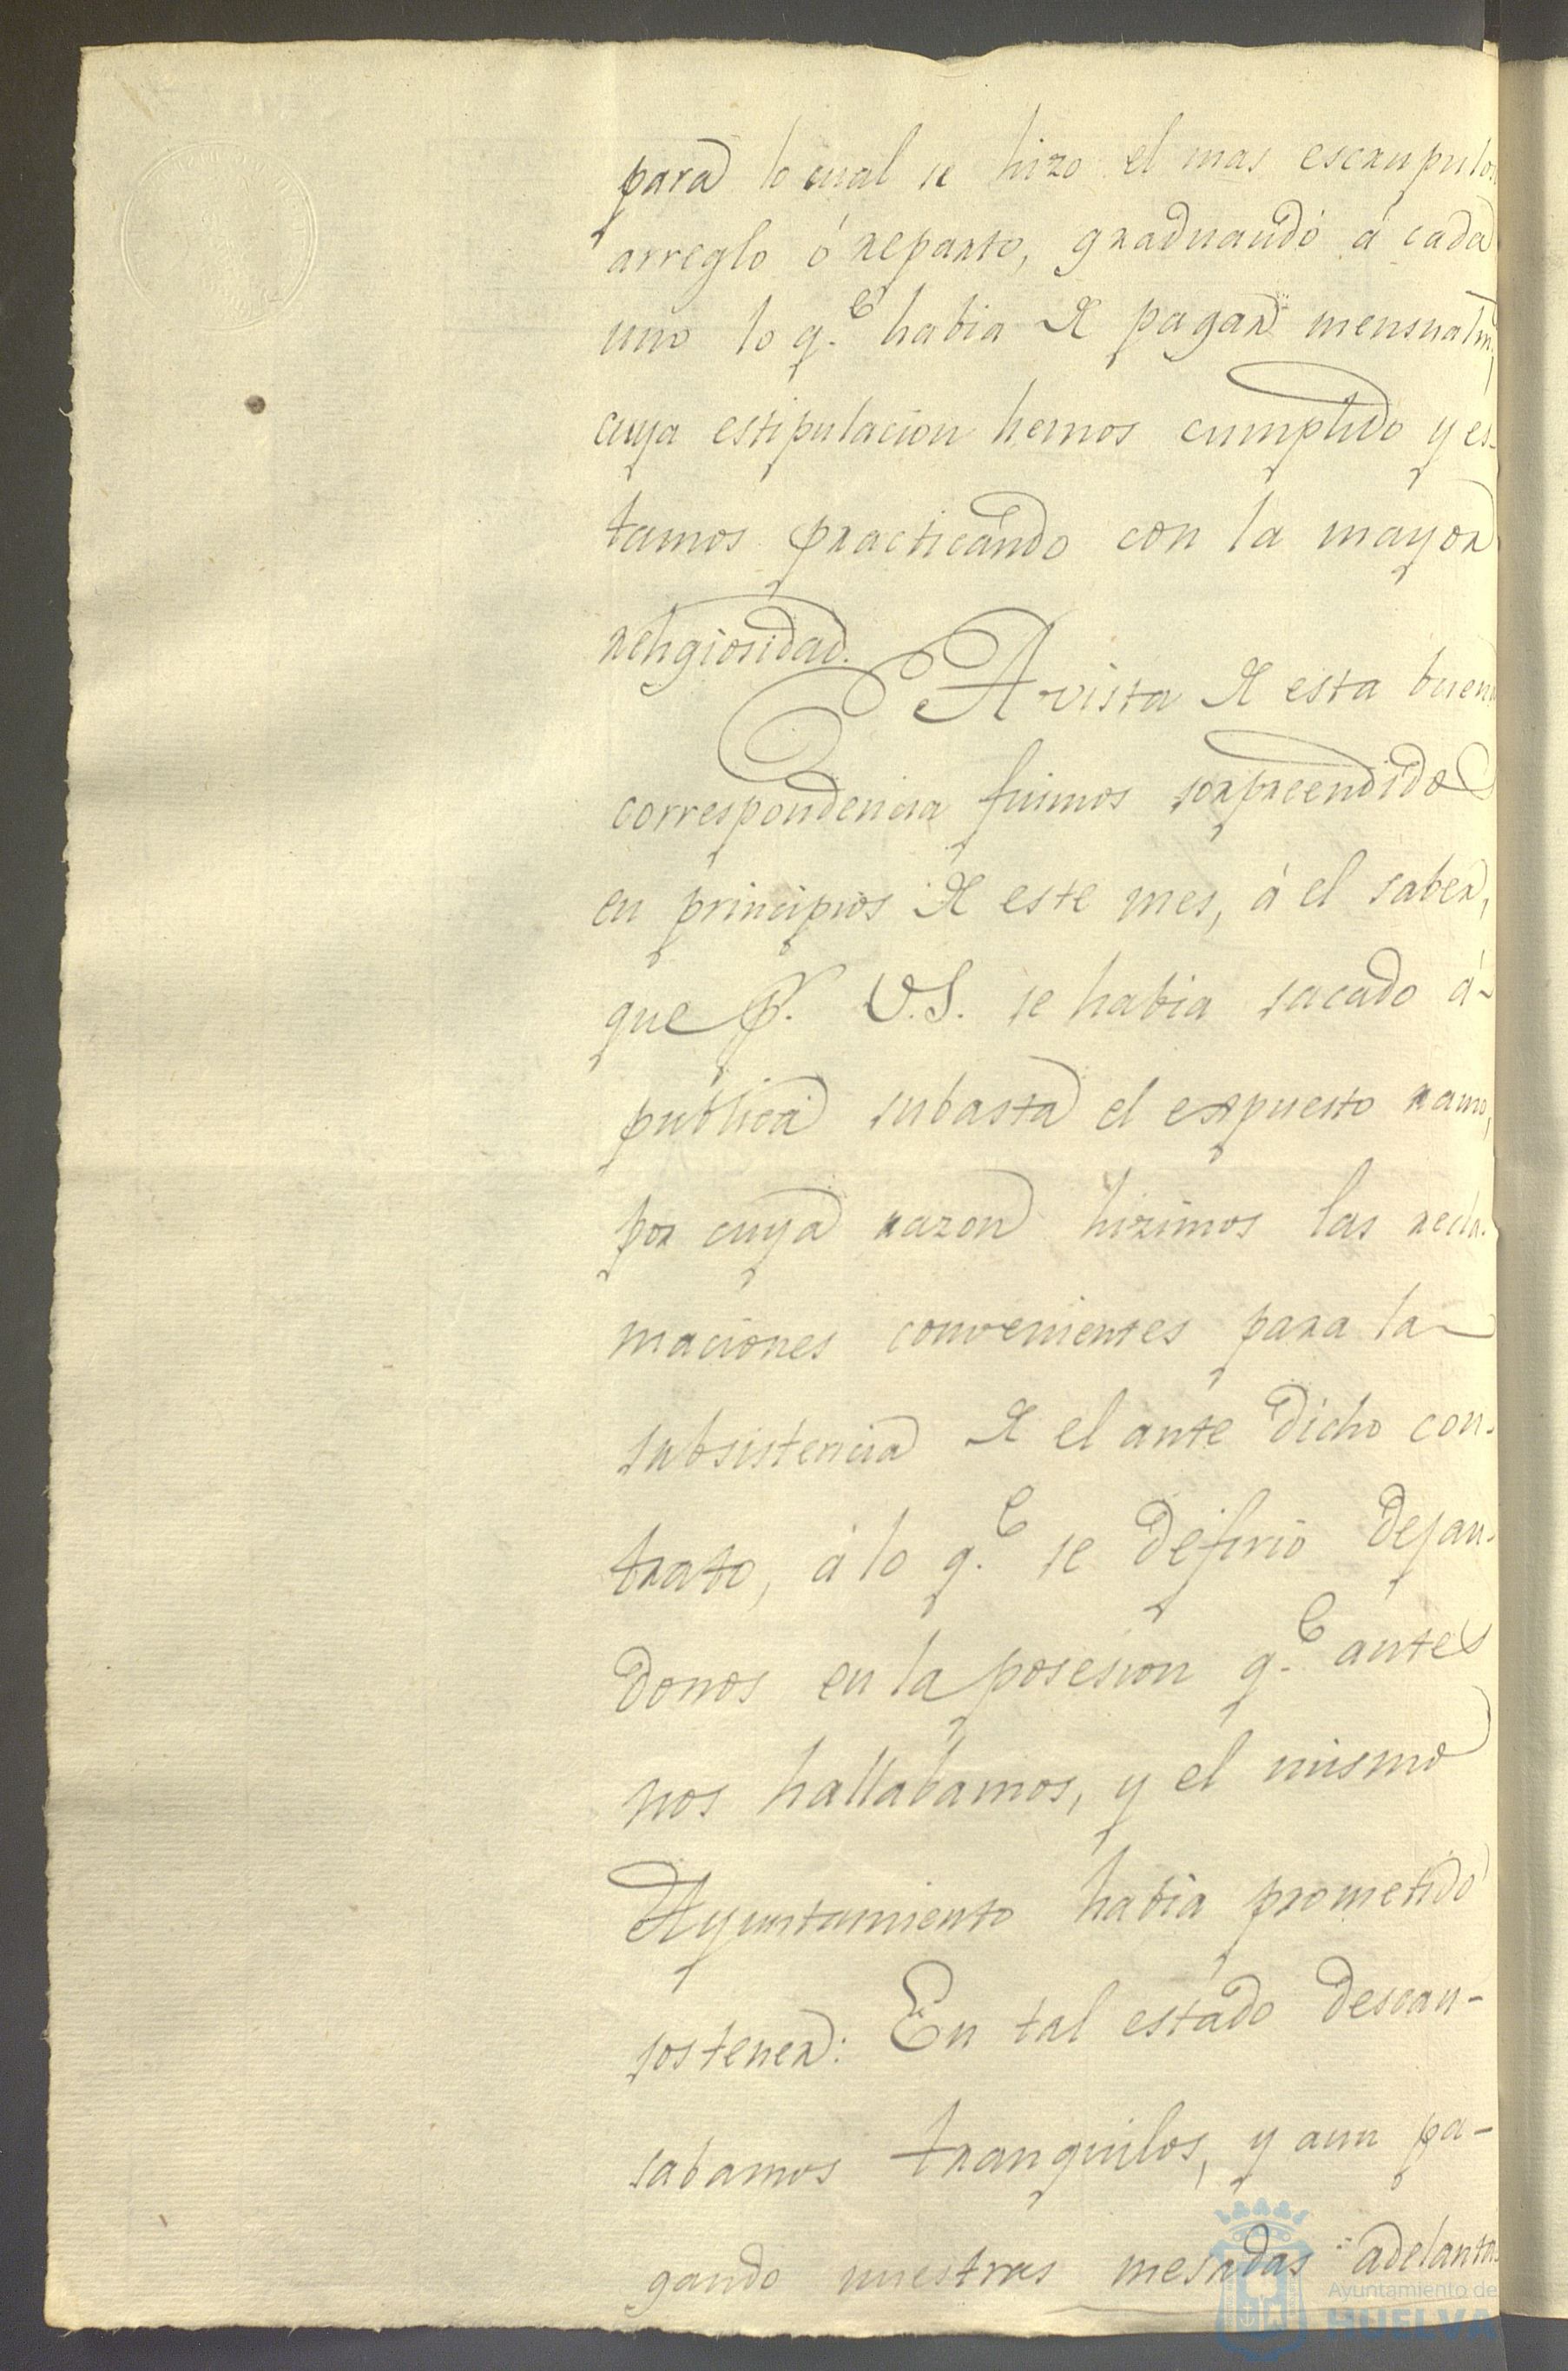 para lo cual se hizo el mas escrupulos
arreglo ó reparto, graduando á cada
uno lo q.e habia de pagar mensualm.
cuya estipulacion hemos cumplido y es-
tamos practicando con la mayor
religiosidad.
A vista de esta buena
correspondencia fuimos sorpreendidos
en principios de este mes, á el saber,
que p.r V.S. se habia sacado á
publica subasta el expuesto ramo,
por cuya razon hizimos las recla-
maciones convenientes para la
subsistencia de el ante dicho con-
trato, á lo q.e se defirió dejan-
donos en la posesion q.e antes
nos hallabamos, y el mismo
Ayuntamiento habia prometido
sostener: En tal estado descan-
sabamos tranquilos, y aun pa-
gando nuestras mesadas adelanta
Ayuntamiento de
HUELVA